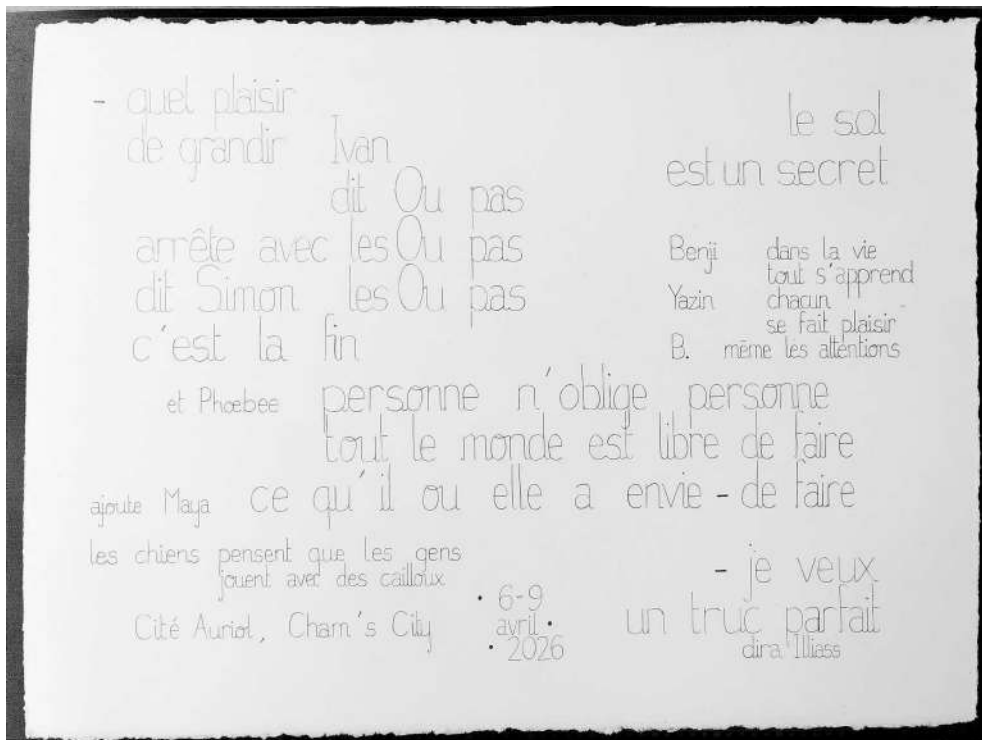 - quel plaisir
de grandir Ivan
dit Ou pas
arrête avec les Ou pas
dit Simon les Ou pas
c'est la fin
le sol
est un secret
Benji dans la vie
tout s'apprend
Yazin chacun
se fait plaisir
B. même les attentions
et Phœbee personne n'oblige personne
tout le monde est libre de faire
ajoute Maya ce qu'il ou elle a envie - de faire
les chiens pensent que les gens
jouent avec des cailloux
Cité Auriol, Cham's City
• 6-9
avril •
• 2026
- je veux
un truc parfait
dira Illiass